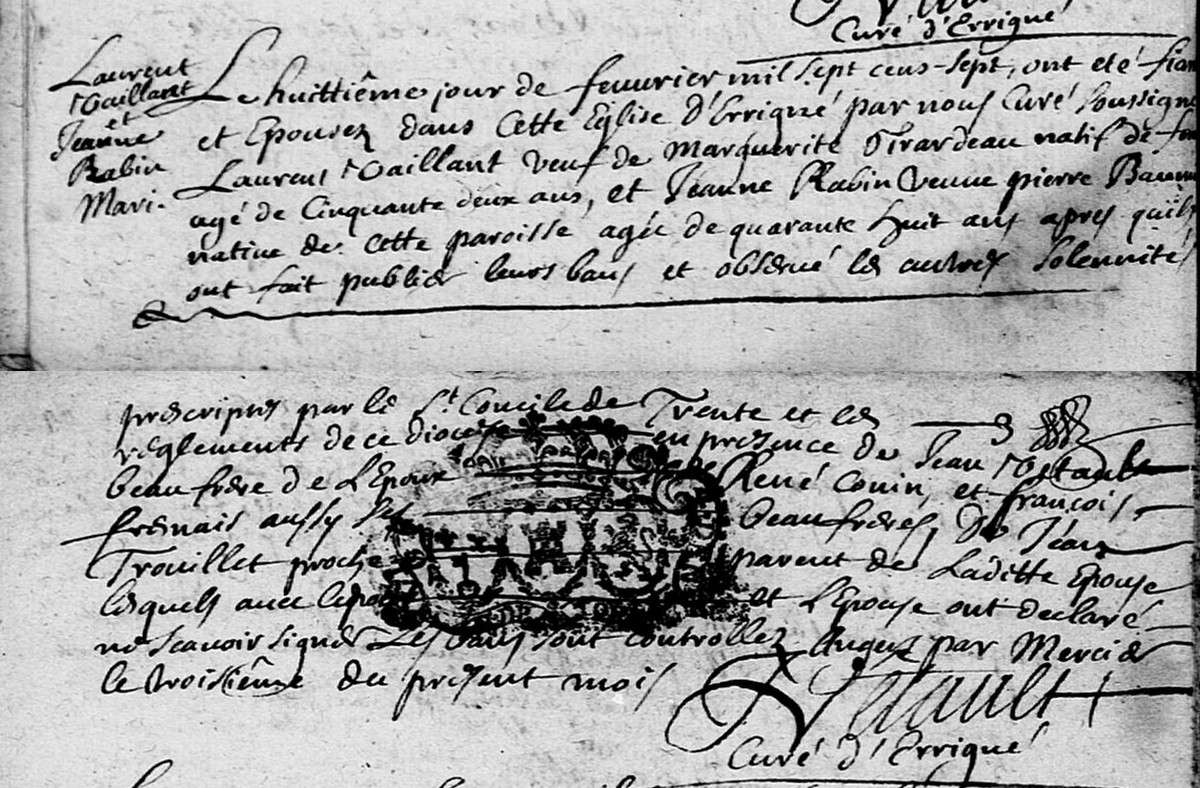 Curé d'Errigué
Laurent
Vaillant
et
Jeanne
Rabin
Mari.
Le huittiême jour de feuvrier mil sept cens sept, ont eté fian
et Epousez dans Cette Eglise d'Errigué par nous Curé soussigné
Laurent Vaillant veuf de Marguerite Girardeau natif de
agé de Cinquante deux ans, et Jeanne Rabin veuue pierre
native de cette paroisse agée de quarante huit ans apres qu'ils
ont fait publier leurs bans et observé les autres solennités
prescriptes par le St. Concile de Trente et les
reglements de ce diocese en presence de Jean
beau frere de L'Epoux René Couin, et françois
fresnais aussy ses beaufreres, De Jean
Trouillet proche parent de Laditte Epouse
lesquels avec lepo et L'Epouse ont declaré
ne scavoir signer Les bans sont controllez par Mercier
le troisiême du present mois
Curé d'Errigué